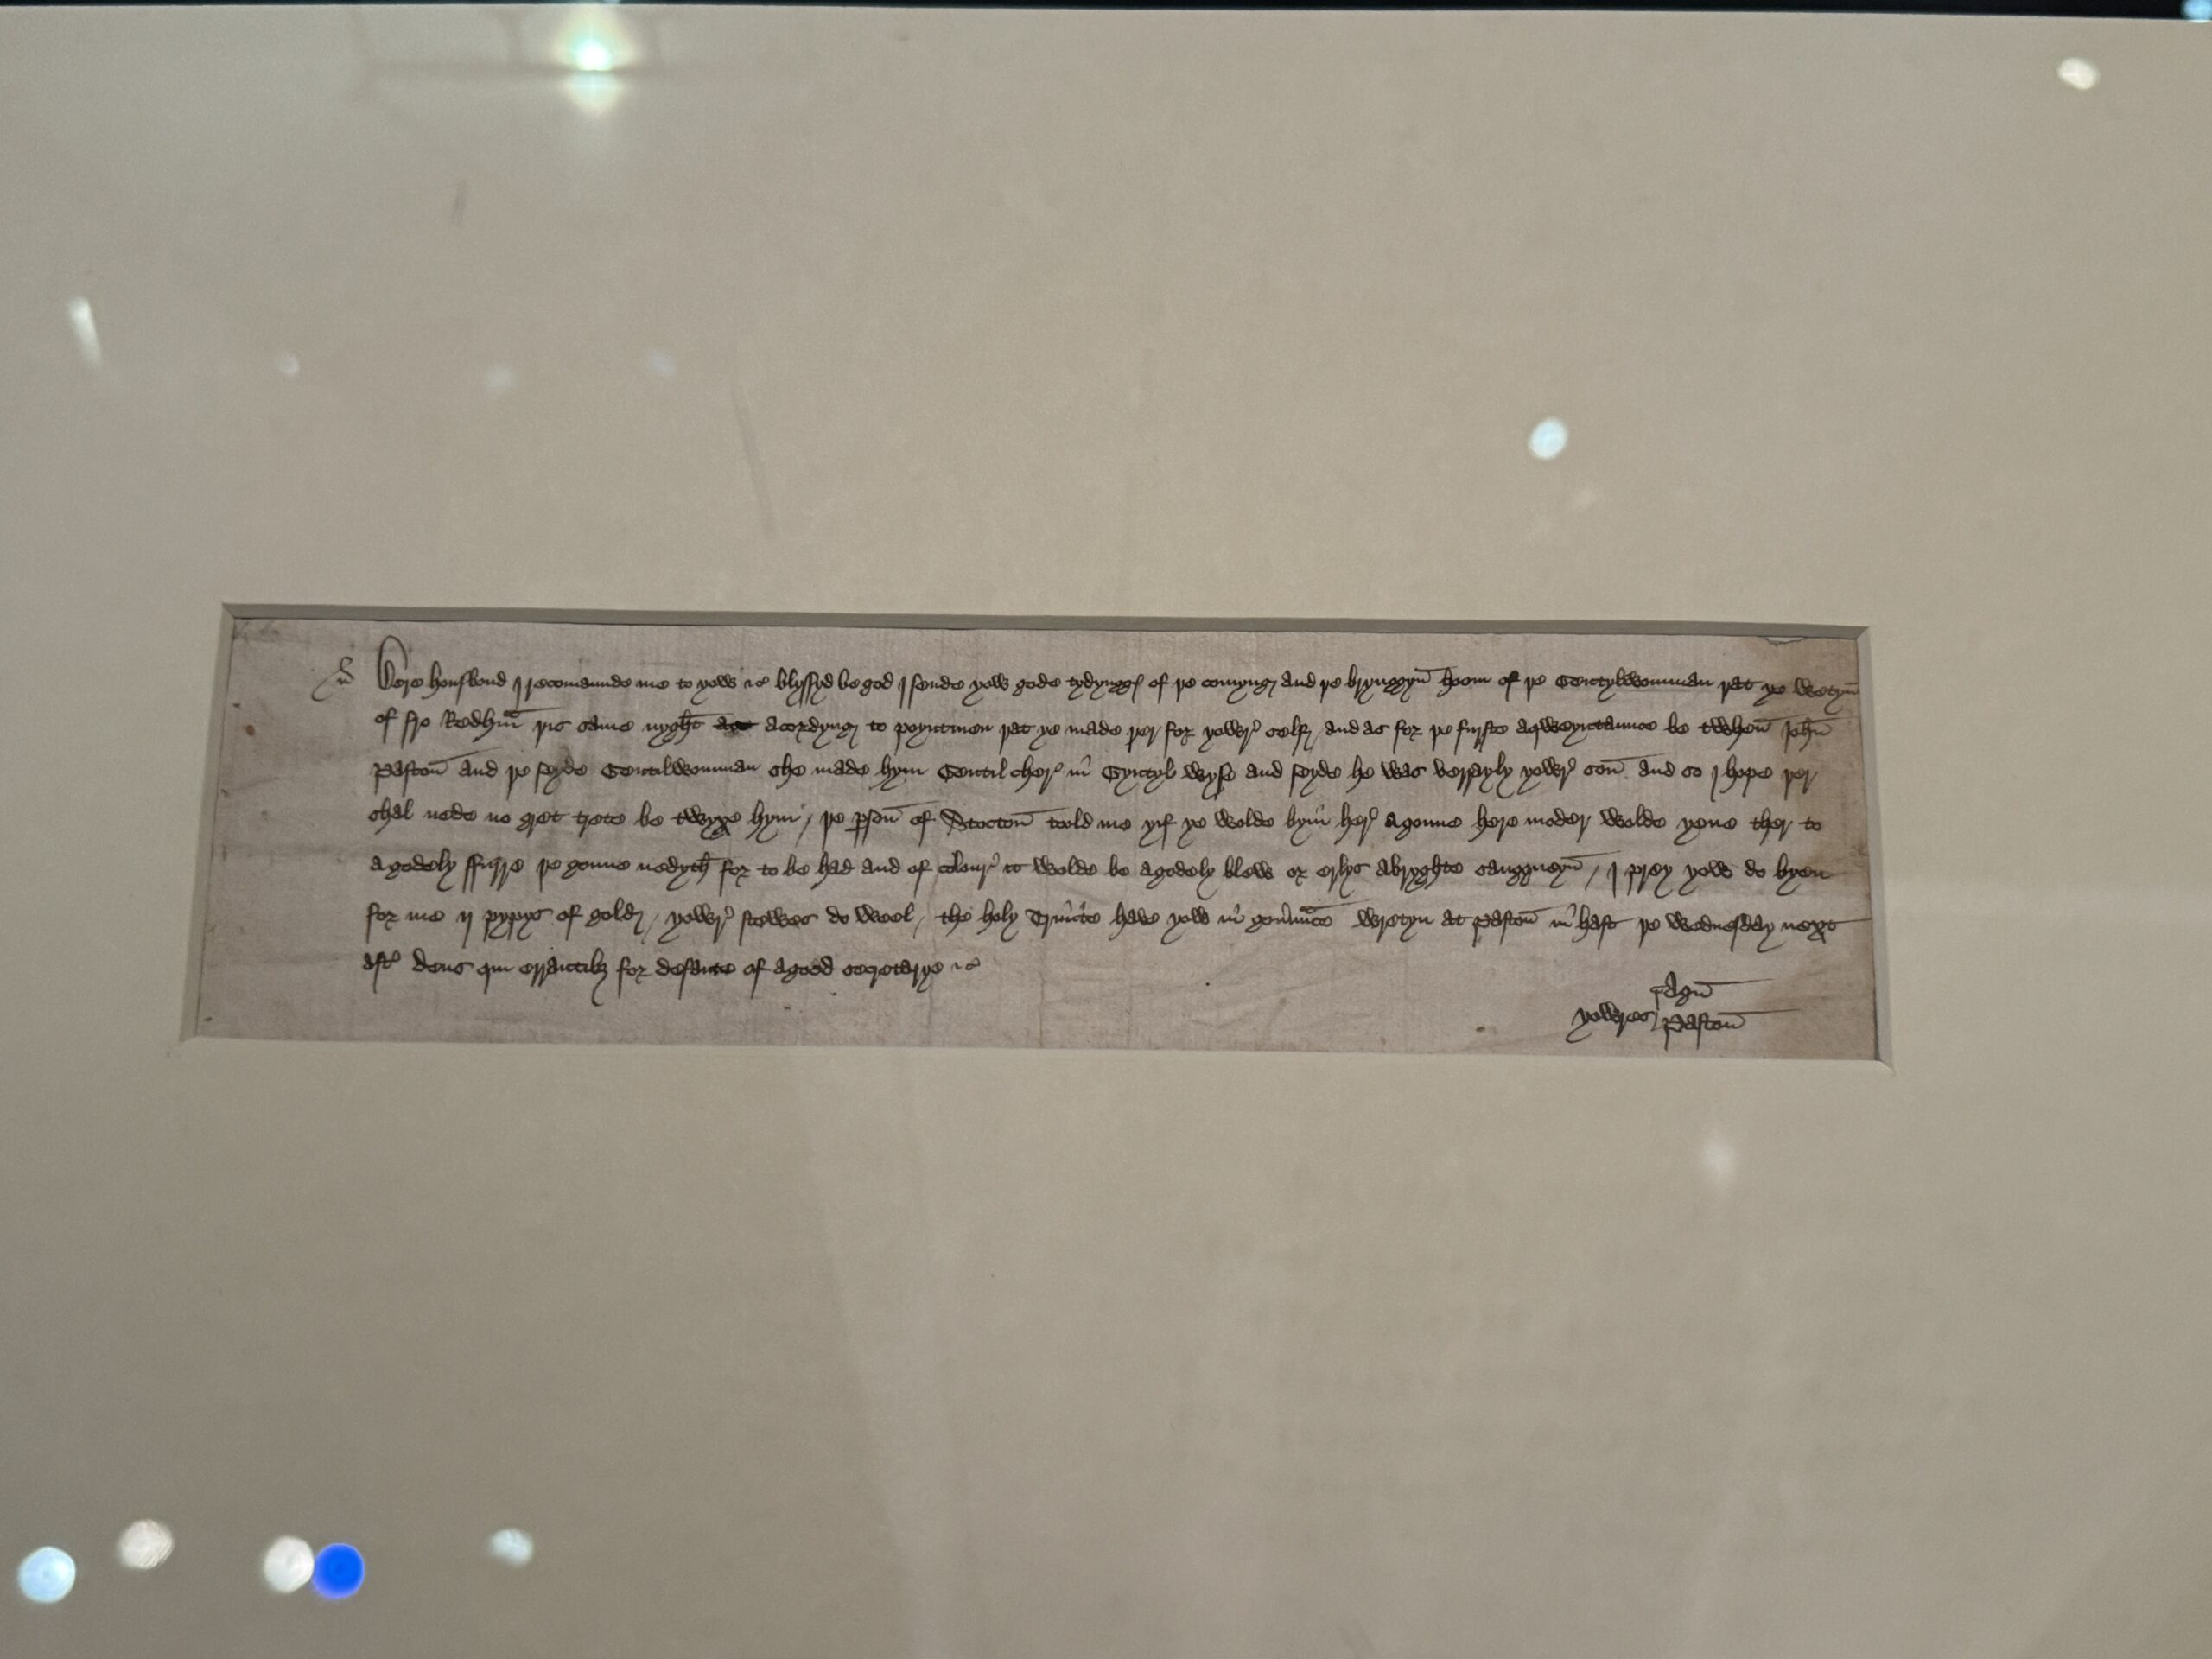 Dere housbond I recomaunde me to yow &c blyssyd be god I sende yow gode tydynggs of þe comyng and þe brynggyn hoom of þe Gentylwomman þat ye wetyn
of fro Redhm̄ þis same nyght acordyng to poyntmen þat ye made þer for yowr self and as for þe furste aqweyntaunce be twhen John
Paston and þe seyde Gentilwomman she made hym Gentil cher in Gyntyl wyse and seyde he was verrayly yowr son and so I hope þer
shal nede no gret trete be twyxe hym / þe p̄son of Stocton toold me yif ye wolde byin her a goune here moder wolde yeue ther to
a godely ffurre þe goune nedyth for to be had and of colour it wolde be a godely blew or erlys a bryghte sanggueyn / I prey yow do byen
for me ij pypys of gold / yowr stewes do weel / the holy Trinite have yow in gou̾naūce wretyn at Paston in hast þe wednesday next
aft̾ deus qui errantibȝ for defaute of a good secretarye &c
yowres Agn̄ Paston